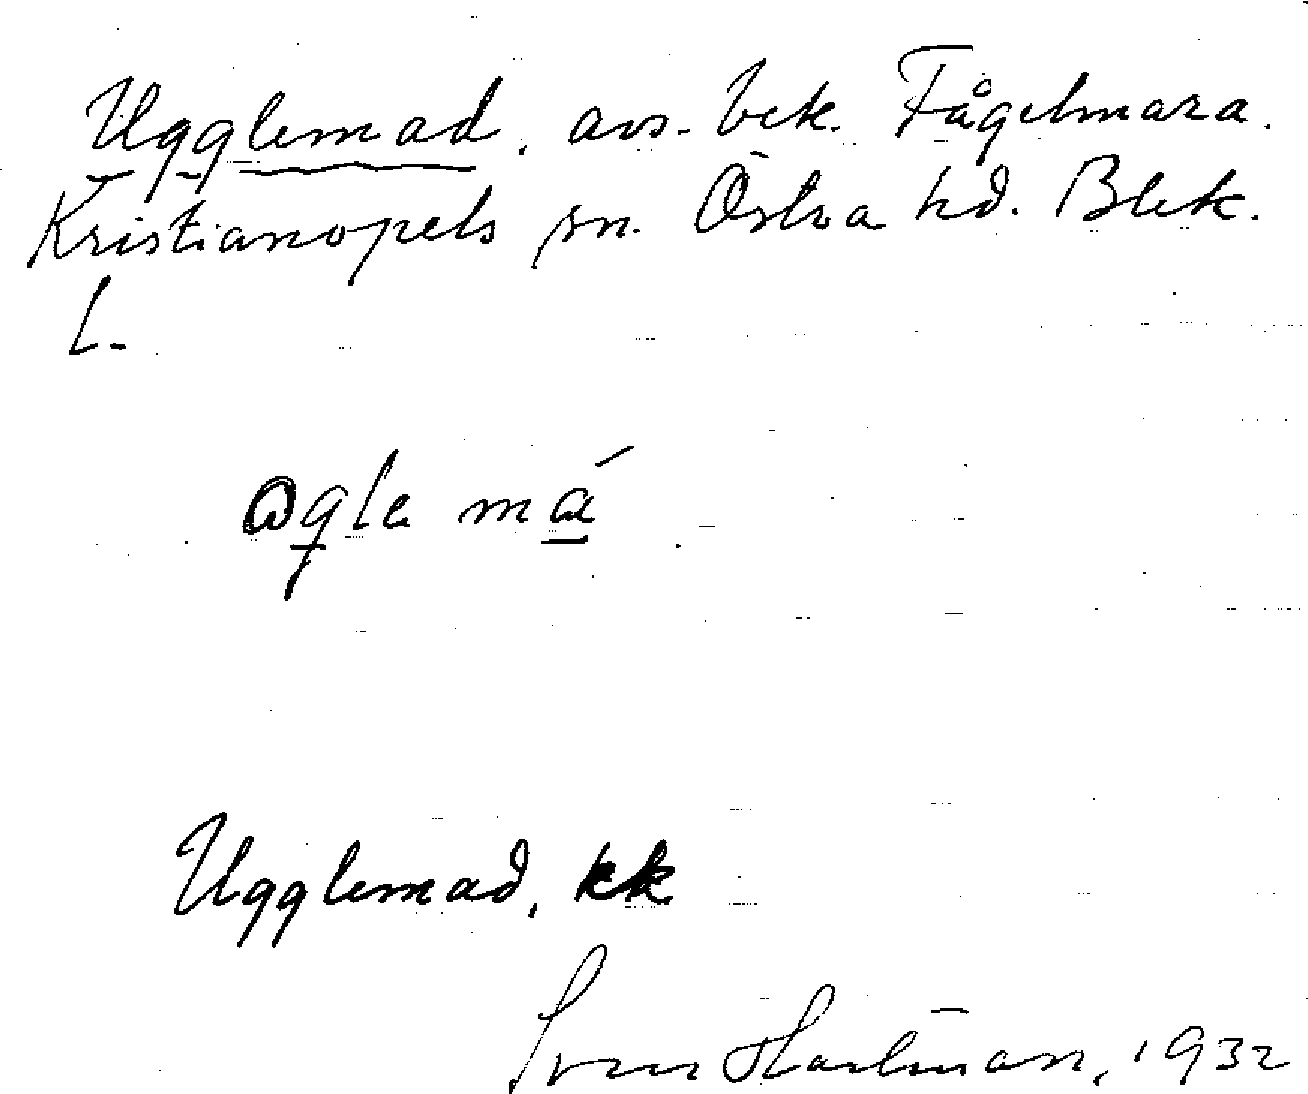 Ugglemad, avs. bek. Fågelmara.
Kristianopels sn. Östra hd. Blek.
L.
Ugglemad, kk
Sven Hartman, 1932